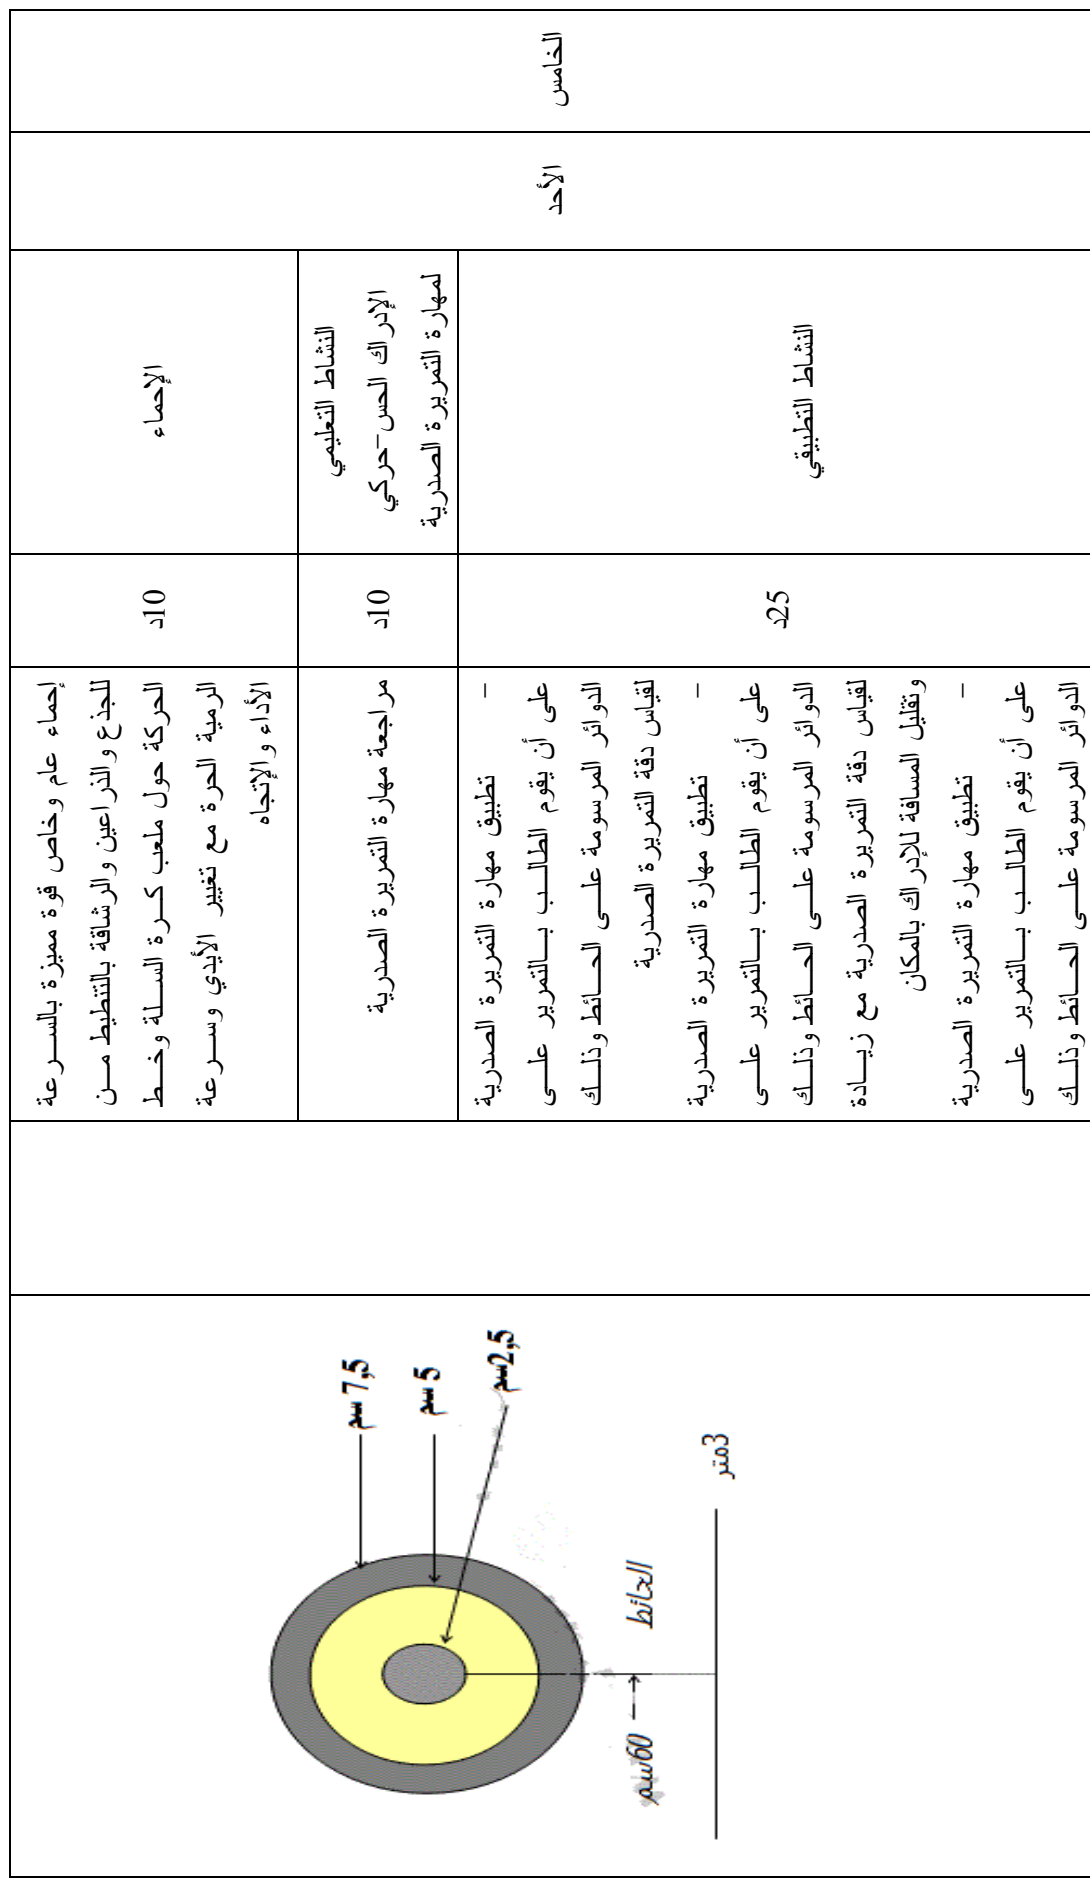 الخامس
الأحد
الإحماء
10د
إحماء عام وخاص قوة مميزة بالسرعة
للجذع والذراعين والرشاقة بالتنطيط من
الحركة حول ملعب كرة السلة وخط
الرمية الحرة مع تغيير الأيدي وسرعة
الأداء والإتجاه
النشاط التعليمي
الإدراك الحس-حركي
لمهارة التمريرة الصدرية
10د
مراجعة مهارة التمريرة الصدرية
النشاط التطبيقي
25د
- تطبيق مهارة التمريرة الصدرية
على أن يقوم الطالب بالتمرير على
الدوائر المرسومة على الحائط وذلك
لقياس دقة التمريرة الصدرية
- تطبيق مهارة التمريرة الصدرية
على أن يقوم الطالب بالتمرير على
الدوائر المرسومة على الحائط وذلك
لقياس دقة التمريرة الصدرية مع زيادة
وتقليل المسافة للإدراك بالمكان
- تطبيق مهارة التمريرة الصدرية
على أن يقوم الطالب بالتمرير على
الدوائر المرسومة على الحائط وذلك
7,5 سم
5 سم
2,5سم
الحائط
60سم
3متر